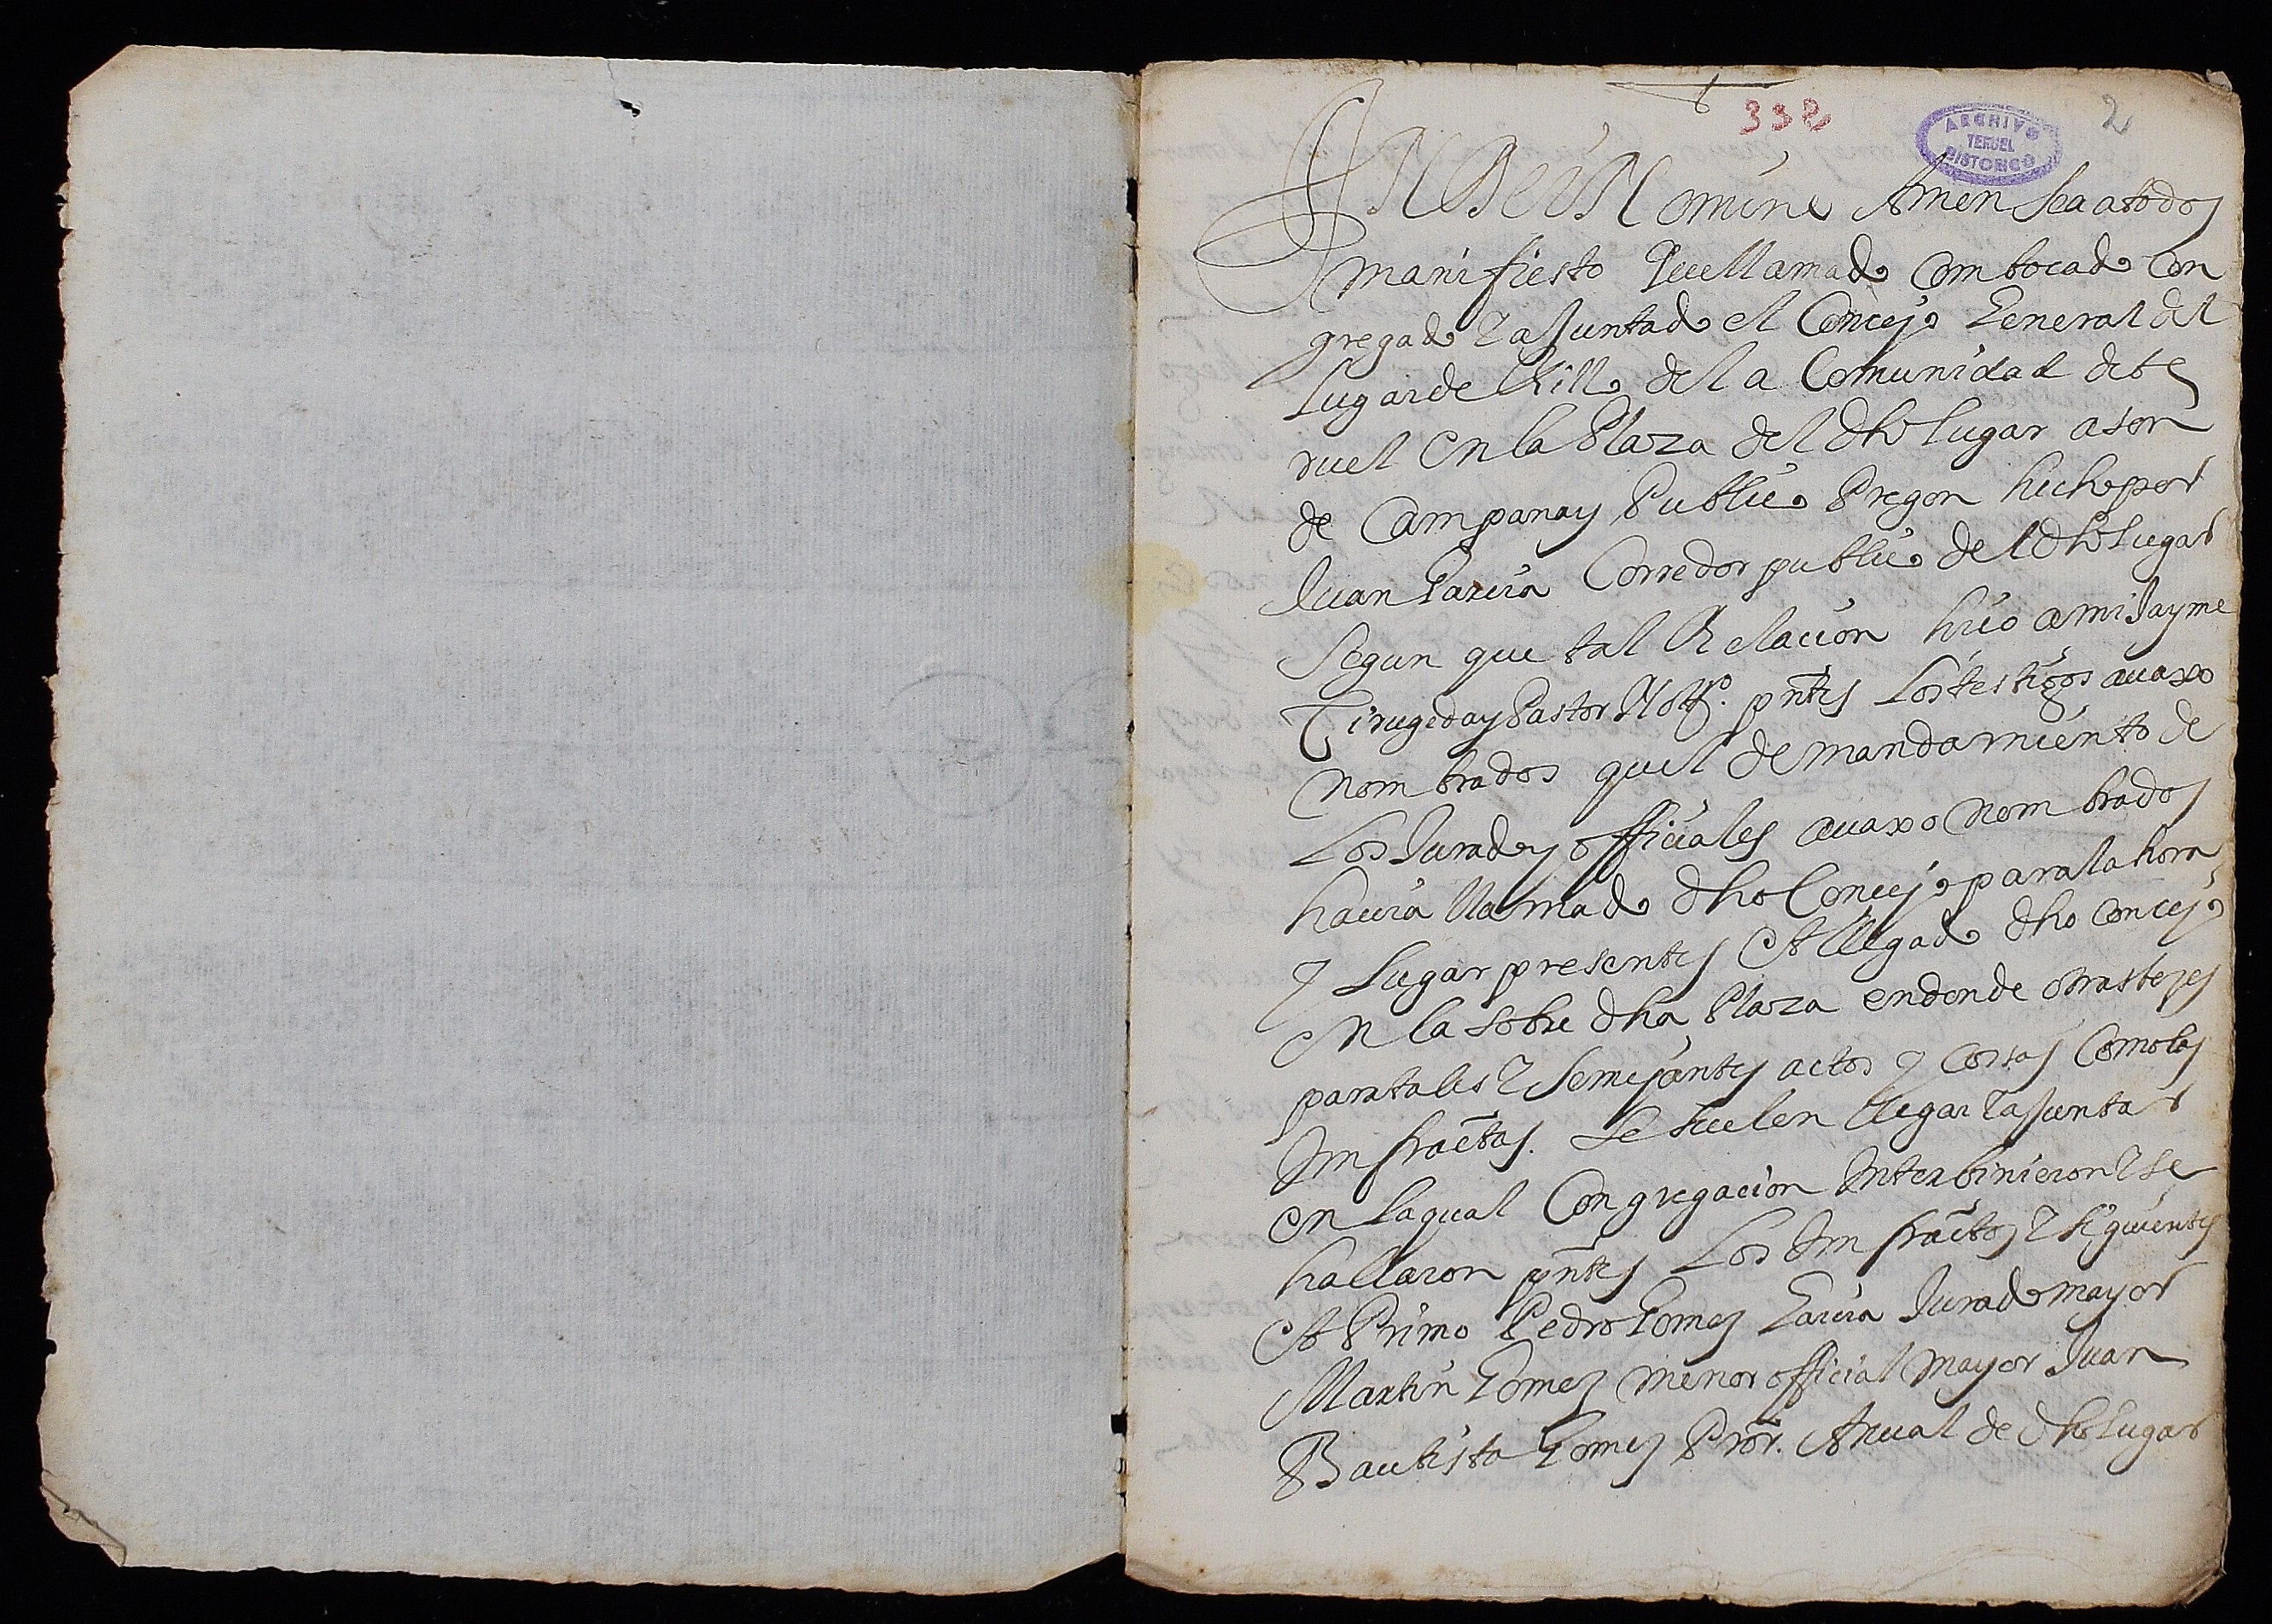 338
2
ARCHIVO
TERUEL
HISTORICO
IN DEI Nomine Amen sea a todos
manifiesto que llamado combocado con
gregado y ajuntado el Concejo General del
lugar de Rillo de la Comunidad de te
ruel en la Plaza del dho lugar a son
de campana y Publico Pregon hicho por
Juan Garcia Corredor publico del dho lugar
segun que tal Relacion hiço a mi Jayme
Cirugeda y Pastor Nott.º pntes los testigos avaxo
nombrados quel de mandamiento de
los Jurados officiales avaxo nombrados
havia llamado dho Concejo para la hora
y lugar presentes Et llegado dho concejo
en la sobre dha Plaza en donde otras bezes
para tales y semejantes actos y cossas como las
Infraētas. se suelen llegar y ajuntar
en la qual Congregacion Interbinieron y se
hallaron pntes los Infraētos y siguientes
Et Primo Pedro Gomez Garcia Jurado mayor
Martin Gomez menor official mayor Juan
Bautista Gomez Pror. Anual de dho lugar